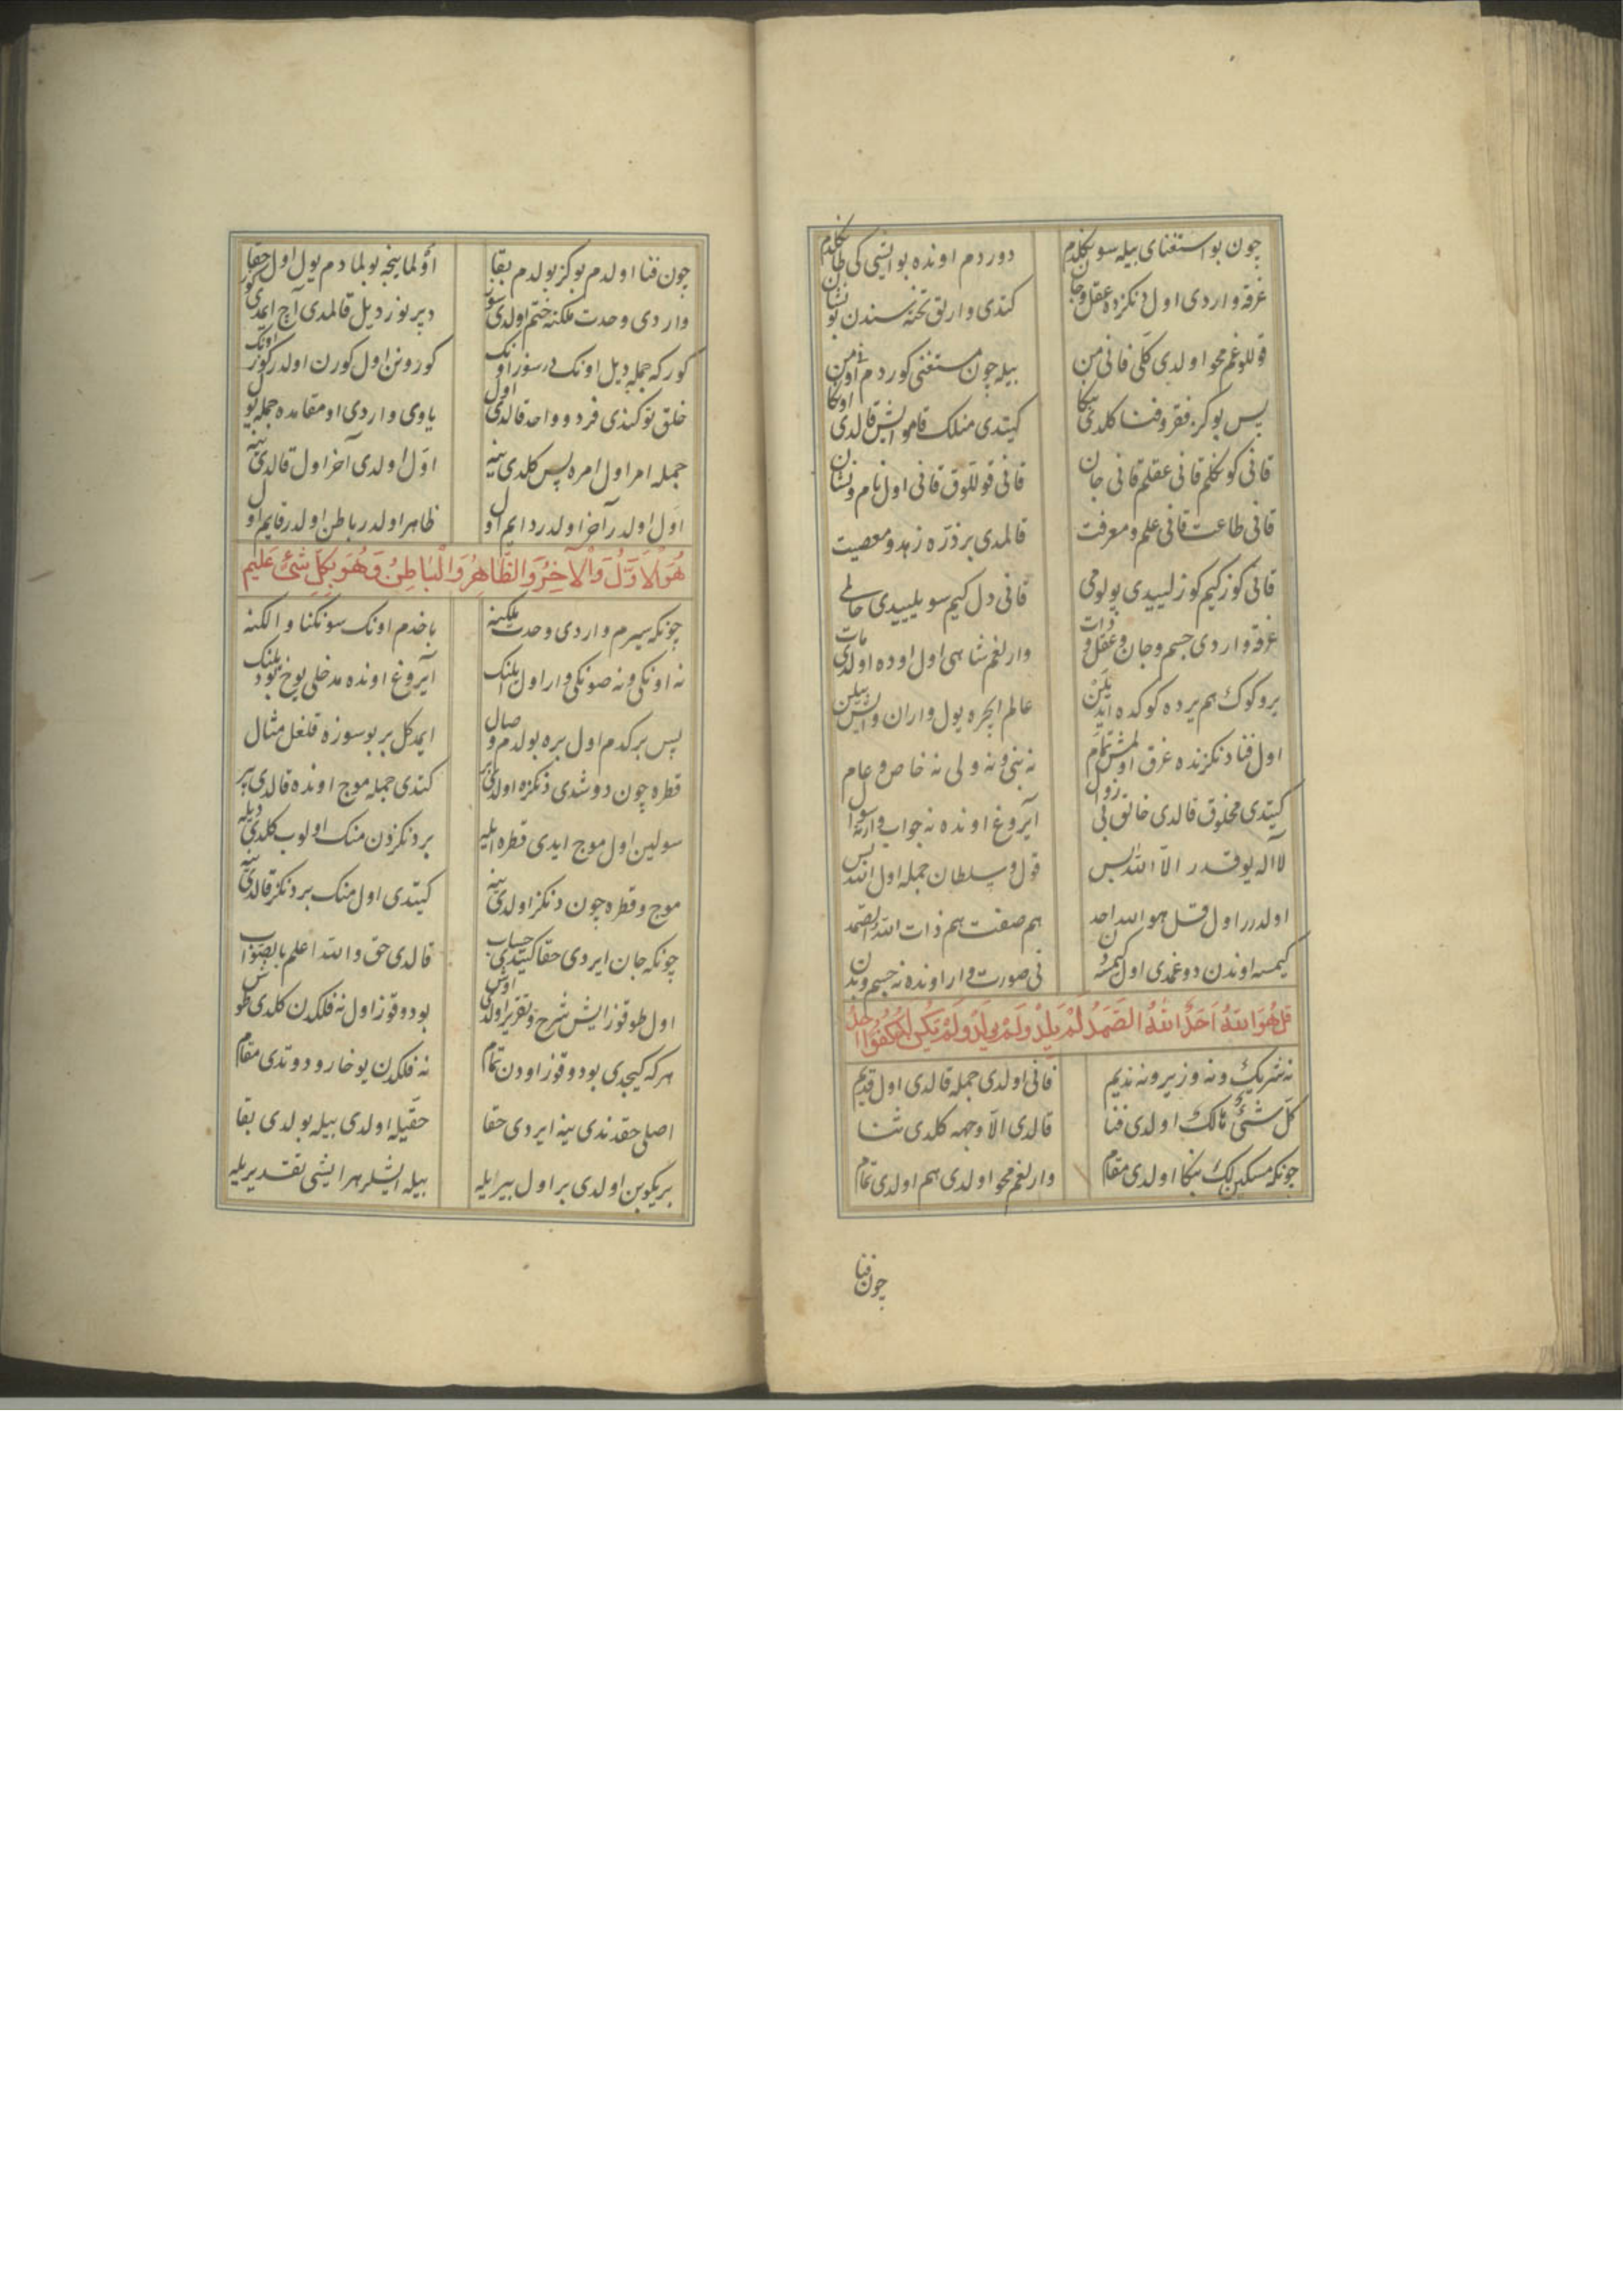 چون بو استغنای بیله سو بکلدم دوردم اونده بو ایشی کی طاکلدم
غرقه واردی اول دنکزده عقل و جان کتدی وارلق تخته سندن بو نشان
قوللوغم محو اولدی کلی فانی من بیله چون مستغنی کوردم اونی من
پس بو کز فقر و فنا کلدی بنکا کیتدی منلک قامو ایش قالدی اونکا
قانی کونکلم قانی عقلم قانی جان قانی قوللوق قانی اول نام و نشان
قانی طاعت قانی علم و معرفت قالمدی بر ذرّه زهد و معصیت
قانی کوز کیم کوزلییدی یولومی قانی دل کیم سویلییدی حالمی
غرقه واردی جسم و جان و عقل و ذات وارلغم شاهی اول اوده اولدی مات
یر و کوک هم یرده کوکده ایدیلن عالم ایچره یول واران و ایش بیلن
اول فنا دنکزنده غرق اولمش تمام نه نبی و نه ولی نه خاص و عام
کیتدی مخلوق قالدی خالق بی زوال آیروغ اونده نه جواب وار نه سؤال
لا اله یوقدر الّا الله بس قول و سلطان جمله اول الله بس
اولدرر اول قل هو الله احد هم صفت هم ذات الله الصمد
کیمسه اوندن دوغمدی اول کیمسه دن نی صورت وار اونده نه جسم و بدن
قُلْ هُوَ اللهُ اَحَدٌ اللهُ الصَّمَدُ لَمْ یَلِدْ وَلَمْ یُولَدْ وَلَمْ یَکُنْ لَهُ کُفُوًا اَحَدٌ
نه شریک و نه وزیر و نه ندیم فانی اولدی جمله قالدی اول قدیم
کلّ شیئ هالک اولدی فنا قالدی الّا وجهه کلدی ثنا
چونکه مسکین لک بنکا اولدی مقام وارلغم محو اولدی هم اولدی تمام
چون فنا
چون فنا اولدم بو کز بولدم بقا اؤلماینجه بولمادم یول اول حقا
واردی وحدت ملکنه ختم اولدی سوز دیر نوز دیل قالمدی آچ ایمدی کوز
کور که جمله دیل اونک در سوز اونک کورونن اول کورن اولدر کوز اونک
خلق توکندی فرد و واحد قالدی اول یاوی واردی او مقامده جمله یول
جمله امر اول امره پس کلدی ینه اوّل اولدی آخر اول قالدی ینه
اوّل اولدر آخر اولدر دایم اول ظاهر اولدر باطن اولدر قایم اول
هُوَ الْاَوَّلُ وَالْآخِرُ وَالظَّاهِرُ وَالْبَاطِنُ وَهُوَ بِکُلِّ شَیْئٍ عَلِیم
چونکه سیرم واردی وحدت ملکینه باخدم اونک سونکنا و الکنه
نه اونکی و نه صونکی وار اول ملنک آیروغ اونده مدخلی یوخ بو دیلنک
پس بر کدم اول بره بولدم وصال ایمد کل بر بو سوزه قلغل مثال
قطره چون دوشدی دنکزه اولدی بر کتدی جمله موج اونده قالدی بر
سولین اول موج ایدی قطره ایله بر دنکزدن منک اولوب کلدی دیله
موج و قطره چون دنکز اولدی ینه کیتدی اول منک بر دنکز قالدی ینه
چونکه جان ایردی حقا کیتدی حساب قالدی حق و الله اعلم بالصّواب
اول طوقوز ایش شرح و تقریر اولدی اوش بو دوقوز اول نه فلکدن کلدی طوش
هر که کیچدی بو دوقوز اودن تمام نه فلکدن یوخارو دوتدی مقام
اصلی حقدندی ینه ایردی حقا حقیله اولدی بیله بولدی بقا
بریکوبن اولدی بر اول بیر ایله بیله ایشلر هر ایشی تقدیریله